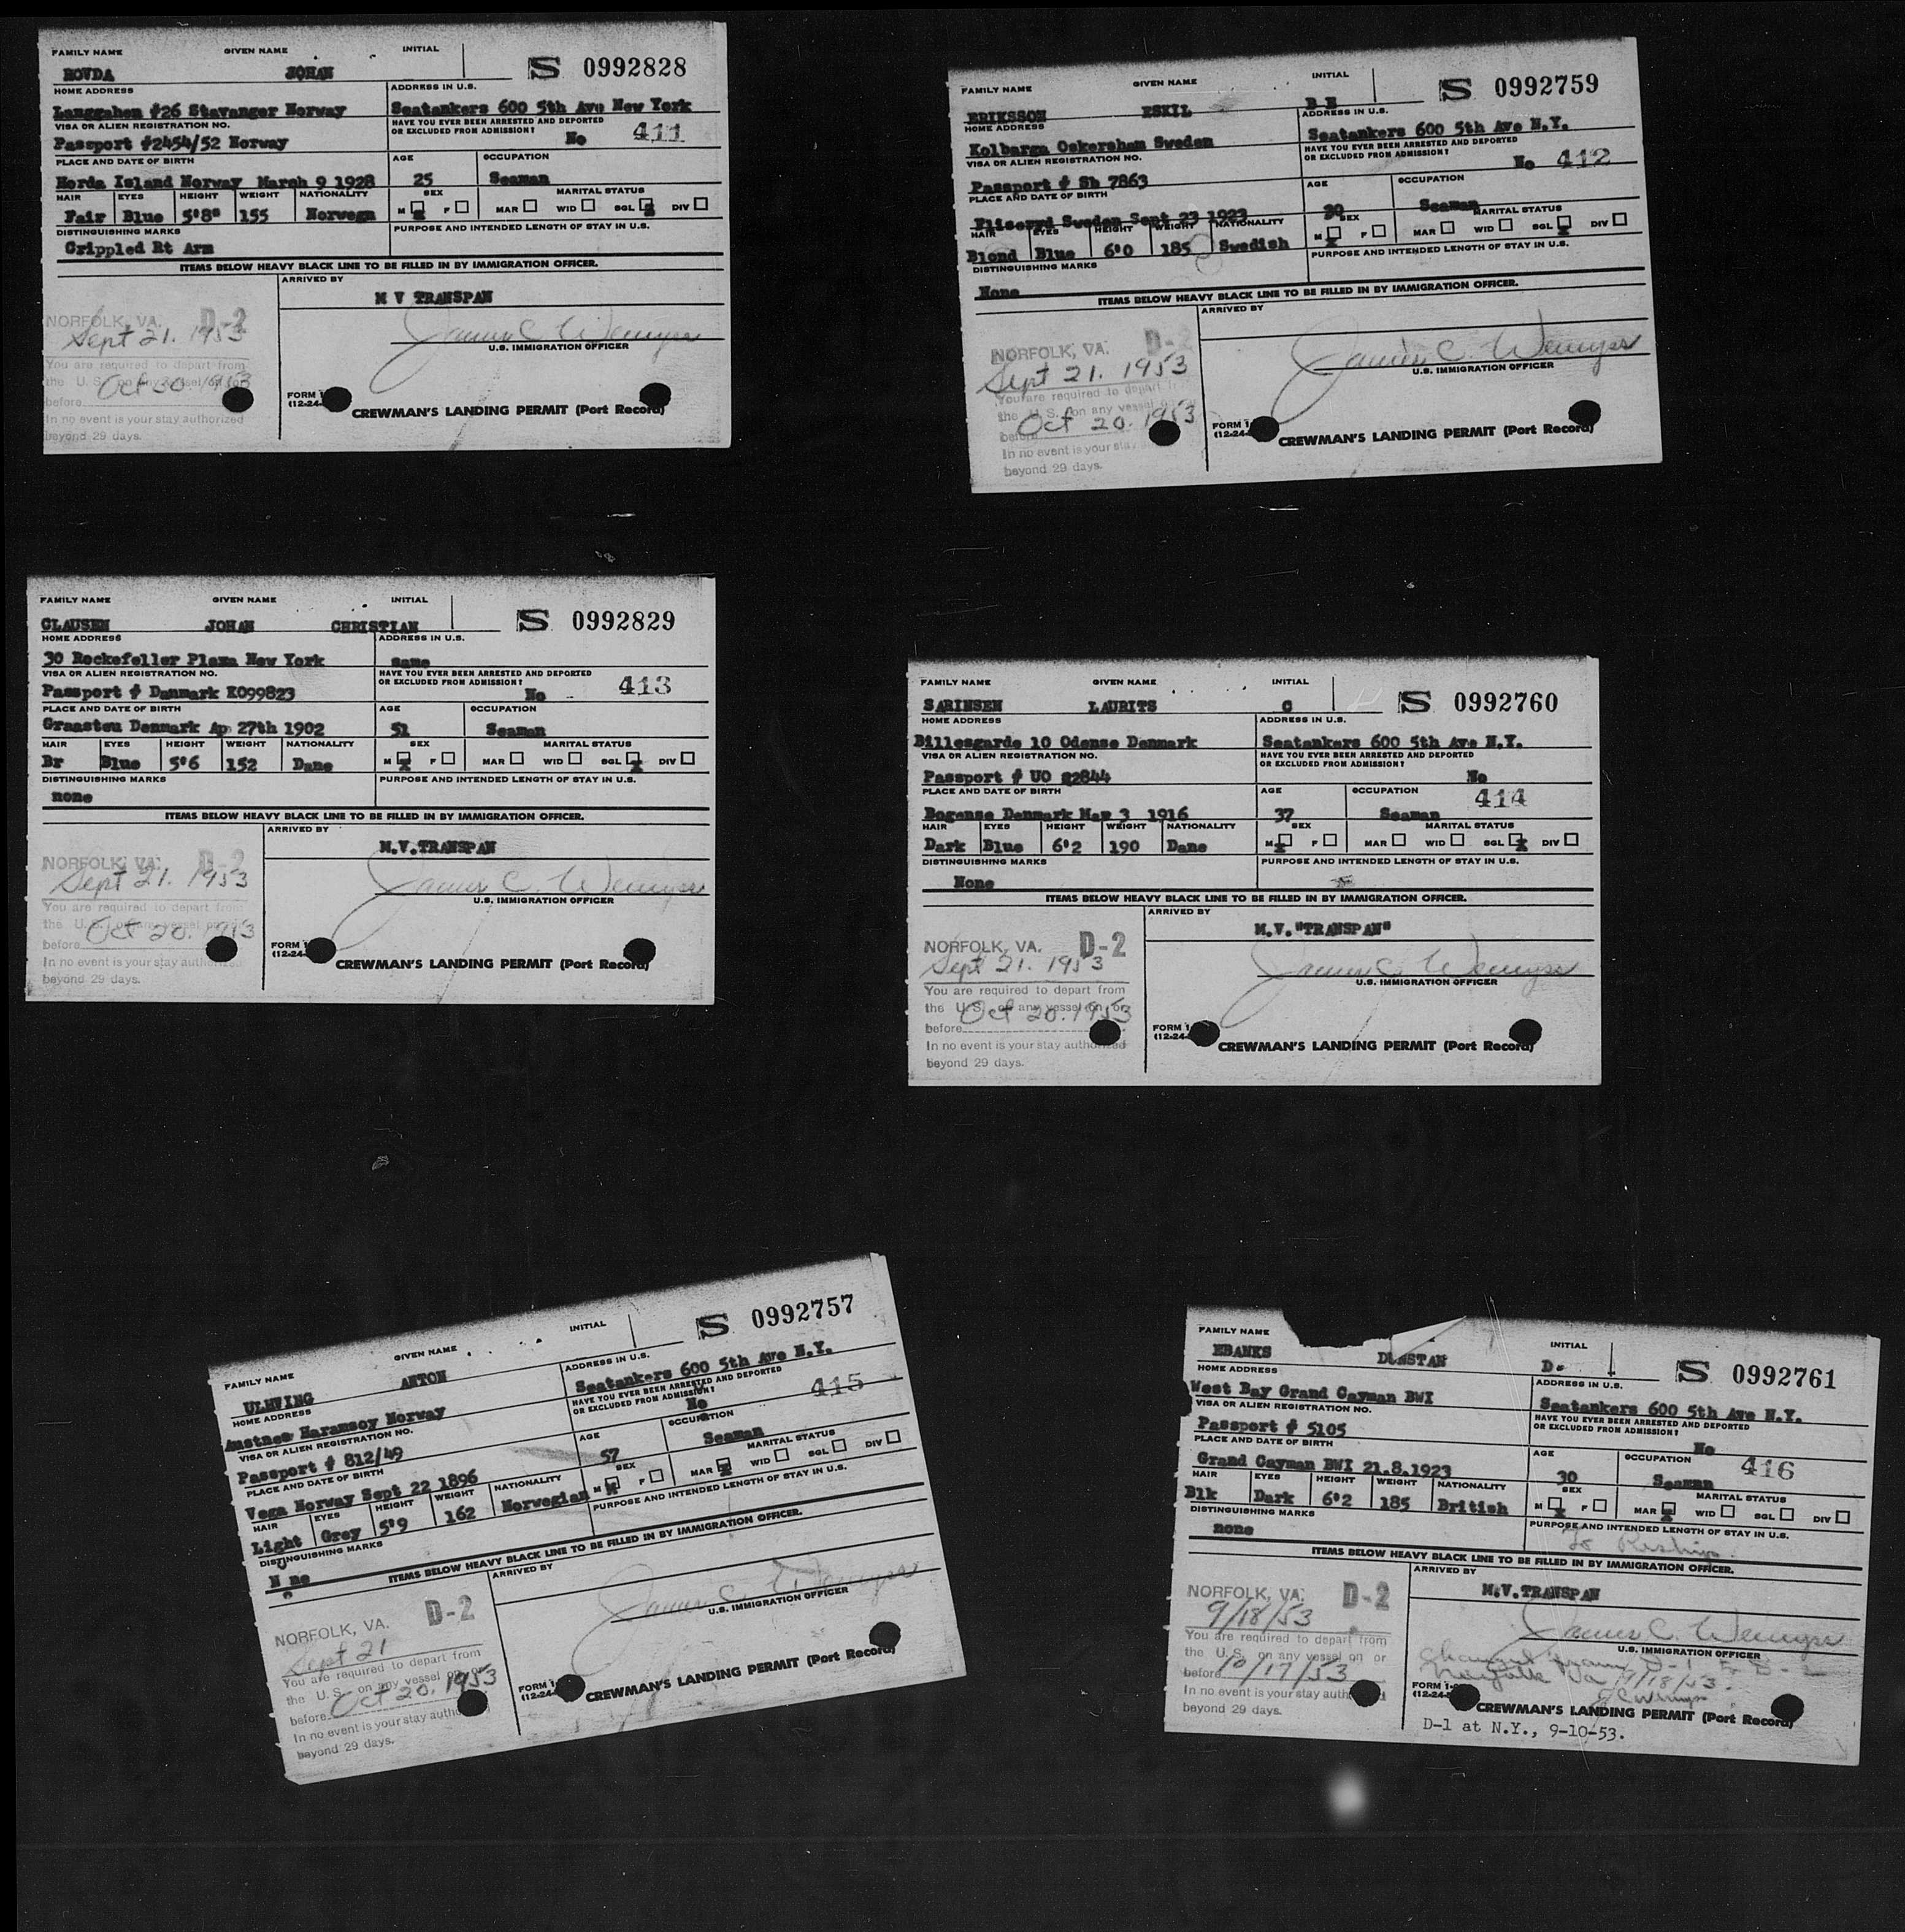 FAMILY NAME GIVEN NAME INITIAL
S 0992828
ROVDA JOHAN
HOME ADDRESS ADDRESS IN U.S.
Langgahen #26 Stavanger Norway Seatankers 600 5th Ave New York
VISA OR ALIEN REGISTRATION NO. HAVE YOU EVER BEEN ARRESTED AND DEPORTED
OR EXCLUDED FROM ADMISSION?
Passport #2454/52 Norway No 411
PLACE AND DATE OF BIRTH AGE OCCUPATION
Horda Island Norway March 9 1928 25 Seaman
HAIR EYES HEIGHT WEIGHT NATIONALITY SEX MARITAL STATUS
Fair Blue 5'8" 155 Norwegn M X F MAR WID SGL X DIV
DISTINGUISHING MARKS PURPOSE AND INTENDED LENGTH OF STAY IN U.S.
Crippled Rt Arm
ITEMS BELOW HEAVY BLACK LINE TO BE FILLED IN BY IMMIGRATION OFFICER.
ARRIVED BY
M V TRANSPAN
NORFOLK, VA. D-2
Sept 21. 1953
James C. Wemyss
U.S. IMMIGRATION OFFICER
You are required to depart from
the U.S. on any vessel on or
before Oct 20 1953
In no event is your stay authorized
beyond 29 days.
FORM
(12-24-
CREWMAN'S LANDING PERMIT (Port Record)
FAMILY NAME GIVEN NAME INITIAL
S 0992759
ERIKSSON ESKIL B N
HOME ADDRESS ADDRESS IN U.S.
Kolbarga Oskersham Sweden Seatankers 600 5th Ave N.Y.
VISA OR ALIEN REGISTRATION NO. HAVE YOU EVER BEEN ARRESTED AND DEPORTED
OR EXCLUDED FROM ADMISSION?
Passport # Sh 7863 No 412
PLACE AND DATE OF BIRTH AGE OCCUPATION
Fliseryd Sweden Sept 23 1923 30 Seaman
HAIR EYES HEIGHT WEIGHT NATIONALITY SEX MARITAL STATUS
Blond Blue 6'0 185 Swedish M X F MAR WID SGL X DIV
DISTINGUISHING MARKS PURPOSE AND INTENDED LENGTH OF STAY IN U.S.
None
ITEMS BELOW HEAVY BLACK LINE TO BE FILLED IN BY IMMIGRATION OFFICER.
ARRIVED BY
NORFOLK, VA. D-2
Sept 21. 1953
James C. Wemyss
U.S. IMMIGRATION OFFICER
You are required to depart
the U.S. on any vessel
before Oct 20. 1953
In no event is your stay
beyond 29 days.
FORM 1
(12-24-
CREWMAN'S LANDING PERMIT (Port Record)
FAMILY NAME GIVEN NAME INITIAL
S 0992829
CLAUSEN JOHAN CHRISTIAN
HOME ADDRESS ADDRESS IN U.S.
30 Rockefeller Plaza New York same
VISA OR ALIEN REGISTRATION NO. HAVE YOU EVER BEEN ARRESTED AND DEPORTED
OR EXCLUDED FROM ADMISSION?
Passport # Danmark K099823 No 413
PLACE AND DATE OF BIRTH AGE OCCUPATION
Graasten Denmark Ap 27th 1902 51 Seaman
HAIR EYES HEIGHT WEIGHT NATIONALITY SEX MARITAL STATUS
Br Blue 5'6 152 Dane M X F MAR WID SGL X DIV
DISTINGUISHING MARKS PURPOSE AND INTENDED LENGTH OF STAY IN U.S.
none
ITEMS BELOW HEAVY BLACK LINE TO BE FILLED IN BY IMMIGRATION OFFICER.
ARRIVED BY
M.V.TRANSPAN
NORFOLK, VA. D-2
Sept 21. 1953
James C. Wemyss
U.S. IMMIGRATION OFFICER
You are required to depart from
the U.S. on any vessel on or
before Oct 20. 1953
In no event is your stay authorized
beyond 29 days.
FORM
(12-24-
CREWMAN'S LANDING PERMIT (Port Record)
FAMILY NAME GIVEN NAME INITIAL
S 0992760
SARINSEN LAURITS C
HOME ADDRESS ADDRESS IN U.S.
Billesgarde 10 Odense Denmark Seatankers 600 5th Ave N.Y.
VISA OR ALIEN REGISTRATION NO. HAVE YOU EVER BEEN ARRESTED AND DEPORTED
OR EXCLUDED FROM ADMISSION?
Passport # UO 22844 No
PLACE AND DATE OF BIRTH AGE OCCUPATION 414
Bogense Denmark May 3 1916 37 Seaman
HAIR EYES HEIGHT WEIGHT NATIONALITY SEX MARITAL STATUS
Dark Blue 6'2 190 Dane M X F MAR WID SGL X DIV
DISTINGUISHING MARKS PURPOSE AND INTENDED LENGTH OF STAY IN U.S.
None
ITEMS BELOW HEAVY BLACK LINE TO BE FILLED IN BY IMMIGRATION OFFICER.
ARRIVED BY
M.V."TRANSPAN"
NORFOLK, VA. D-2
Sept 21. 1953
James C. Wemyss
U.S. IMMIGRATION OFFICER
You are required to depart from
the U.S. on any vessel on or
before Oct 20. 1953
In no event is your stay authorized
beyond 29 days.
FORM 1
(12-24-
CREWMAN'S LANDING PERMIT (Port Record)
FAMILY NAME GIVEN NAME INITIAL
S 0992757
ULHVING ANTON
HOME ADDRESS ADDRESS IN U.S.
Austnes Haramsoy Norway Seatankers 600 5th Ave N.Y.
VISA OR ALIEN REGISTRATION NO. HAVE YOU EVER BEEN ARRESTED AND DEPORTED
OR EXCLUDED FROM ADMISSION?
Passport # 812/49 No 415
PLACE AND DATE OF BIRTH AGE OCCUPATION
Vega Norway Sept 22 1896 57 Seaman
HAIR EYES HEIGHT WEIGHT NATIONALITY SEX MARITAL STATUS
Light Grey 5'9 162 Norwegian M X F MAR X WID SGL DIV
DISTINGUISHING MARKS PURPOSE AND INTENDED LENGTH OF STAY IN U.S.
None
ITEMS BELOW HEAVY BLACK LINE TO BE FILLED IN BY IMMIGRATION OFFICER.
ARRIVED BY
NORFOLK, VA. D-2
Sept 21
James C. Wemyss
U.S. IMMIGRATION OFFICER
You are required to depart from
the U.S. on any vessel on or
before Oct 20. 1953
In no event is your stay autho
beyond 29 days.
FORM 1
(12-24-
CREWMAN'S LANDING PERMIT (Port Record)
FAMILY NAME INITIAL
S 0992761
EBANKS DUNSTAN D.
HOME ADDRESS ADDRESS IN U.S.
West Bay Grand Cayman BWI Seatankers 600 5th Ave N.Y.
VISA OR ALIEN REGISTRATION NO. HAVE YOU EVER BEEN ARRESTED AND DEPORTED
OR EXCLUDED FROM ADMISSION?
Passport # 5105 No
PLACE AND DATE OF BIRTH AGE OCCUPATION 416
Grand Cayman BWI 21.8.1923 30 Seaman
HAIR EYES HEIGHT WEIGHT NATIONALITY SEX MARITAL STATUS
Blk Dark 6'2 185 British M X F MAR X WID SGL DIV
DISTINGUISHING MARKS PURPOSE AND INTENDED LENGTH OF STAY IN U.S.
none To Reship.
ITEMS BELOW HEAVY BLACK LINE TO BE FILLED IN BY IMMIGRATION OFFICER.
ARRIVED BY
M.V.TRANSPAN
NORFOLK, VA. D-2
9/18/53
James C. Wemyss
U.S. IMMIGRATION OFFICER
You are required to depart from
the U.S. on any vessel on or
before 10/17/53
In no event is your stay auth
beyond 29 days.
Changed from D-1 to D-2
Norfolk Va 9/18/53.
FORM 1-
(12-24-
CREWMAN'S LANDING PERMIT (Port Record)
D-1 at N.Y., 9-10-53.